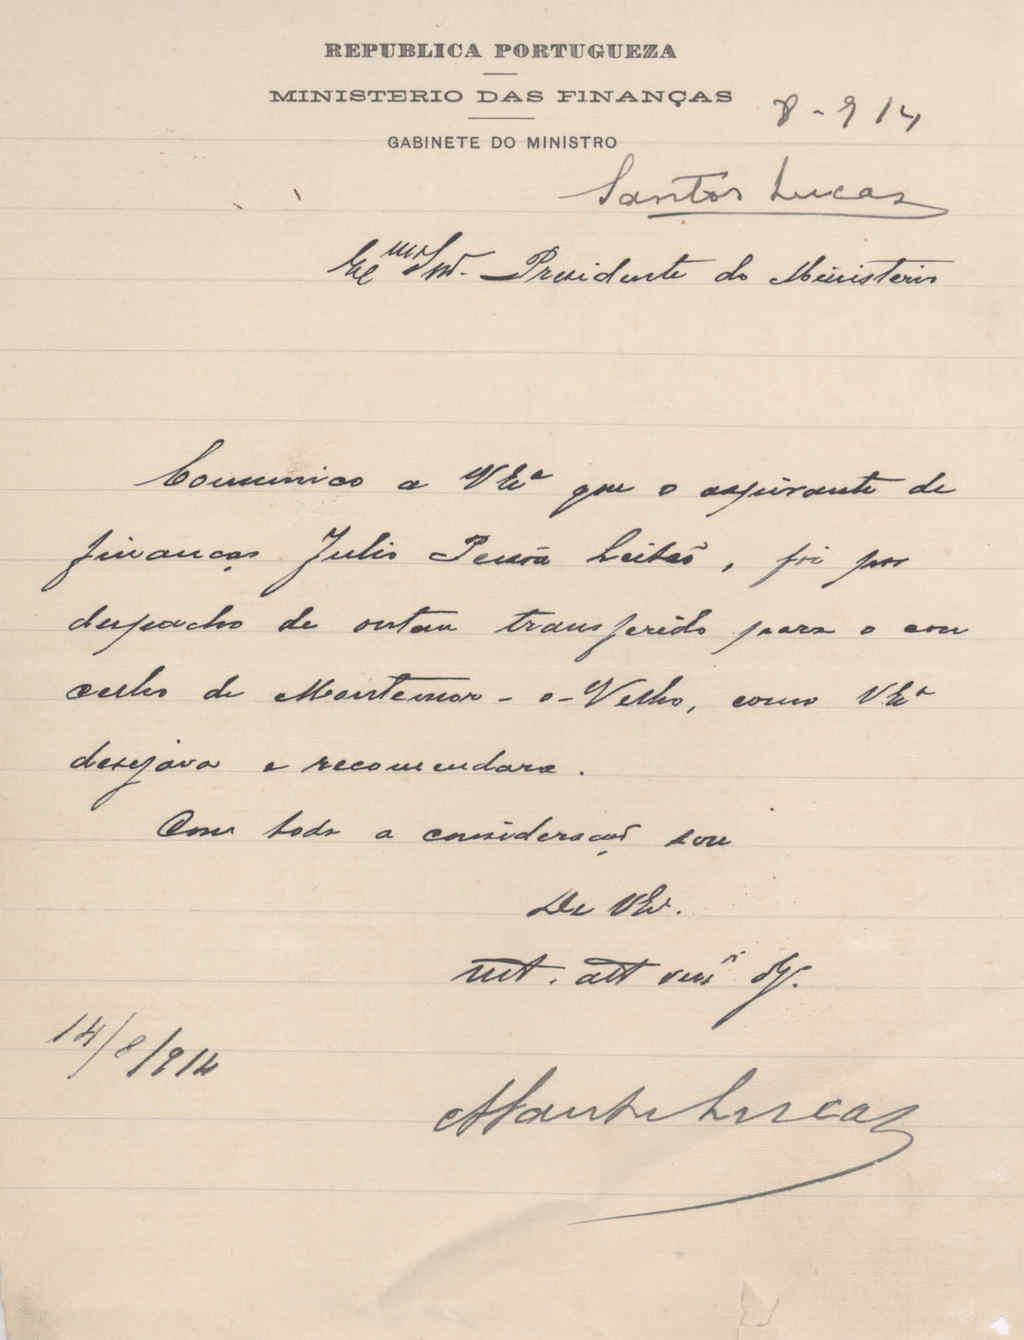 REPUBLICA PORTUGUEZA
MINISTERIO DAS FINANÇAS
8-914
GABINETE DO MINISTRO
Santos Lucas
Exmo Snr. Presidente do Ministerio
Comunico a VExa que o aspirante de
finanças Julio Leitão, foi por
despacho de ontem transferido para o con
celho de Montemor-o-Velho, como VExa
desejava e recomendara.
Com toda a consideração sou
De VEx.
mt. att
14/8/914
A Santos Lucas